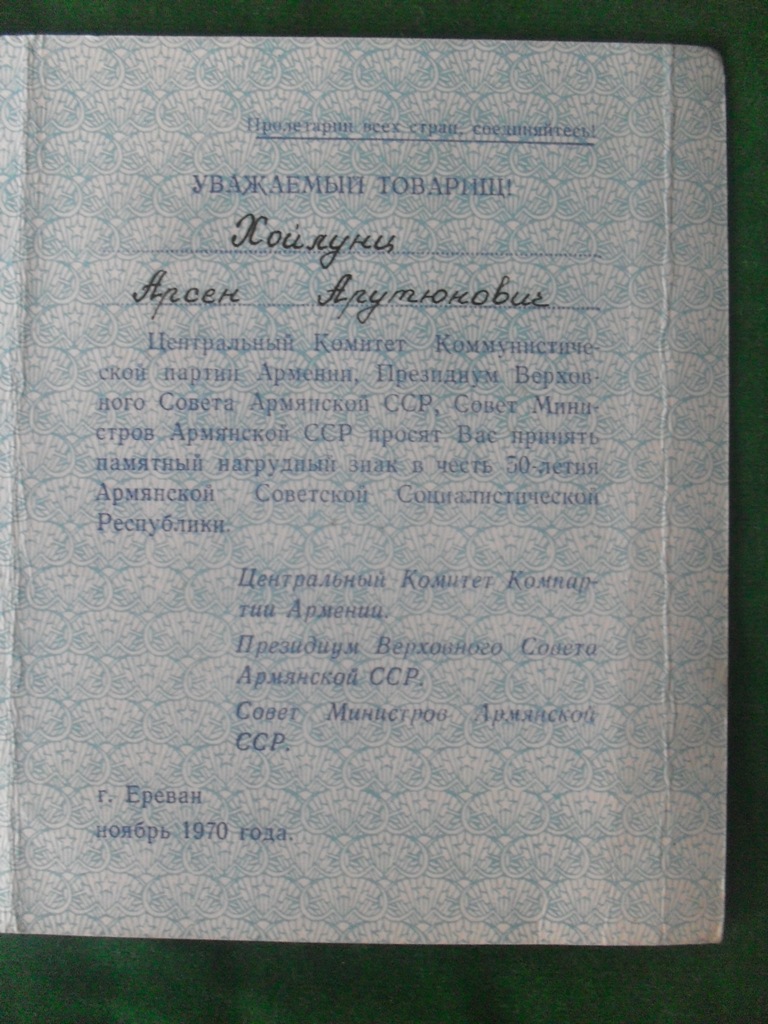 Пролетарии всех стран, соединяйтесь!
УВАЖАЕМЫЙ ТОВАРИЩ!
Хойлунц
Арсен Арутюнович
Центральный Комитет Коммунистиче-
ской партии Армении, Президиум Верхов-
ного Совета Армянской ССР, Совет Мини-
стров Армянской ССР просят Вас принять
памятный нагрудный знак в честь 50-летия
Армянской Советской Социалистической
Республики.
Центральный Комитет Компар-
тии Армении.
Президиум Верховного Совета
Армянской ССР.
Совет Министров Армянской
ССР.
г. Ереван
ноябрь 1970 года.